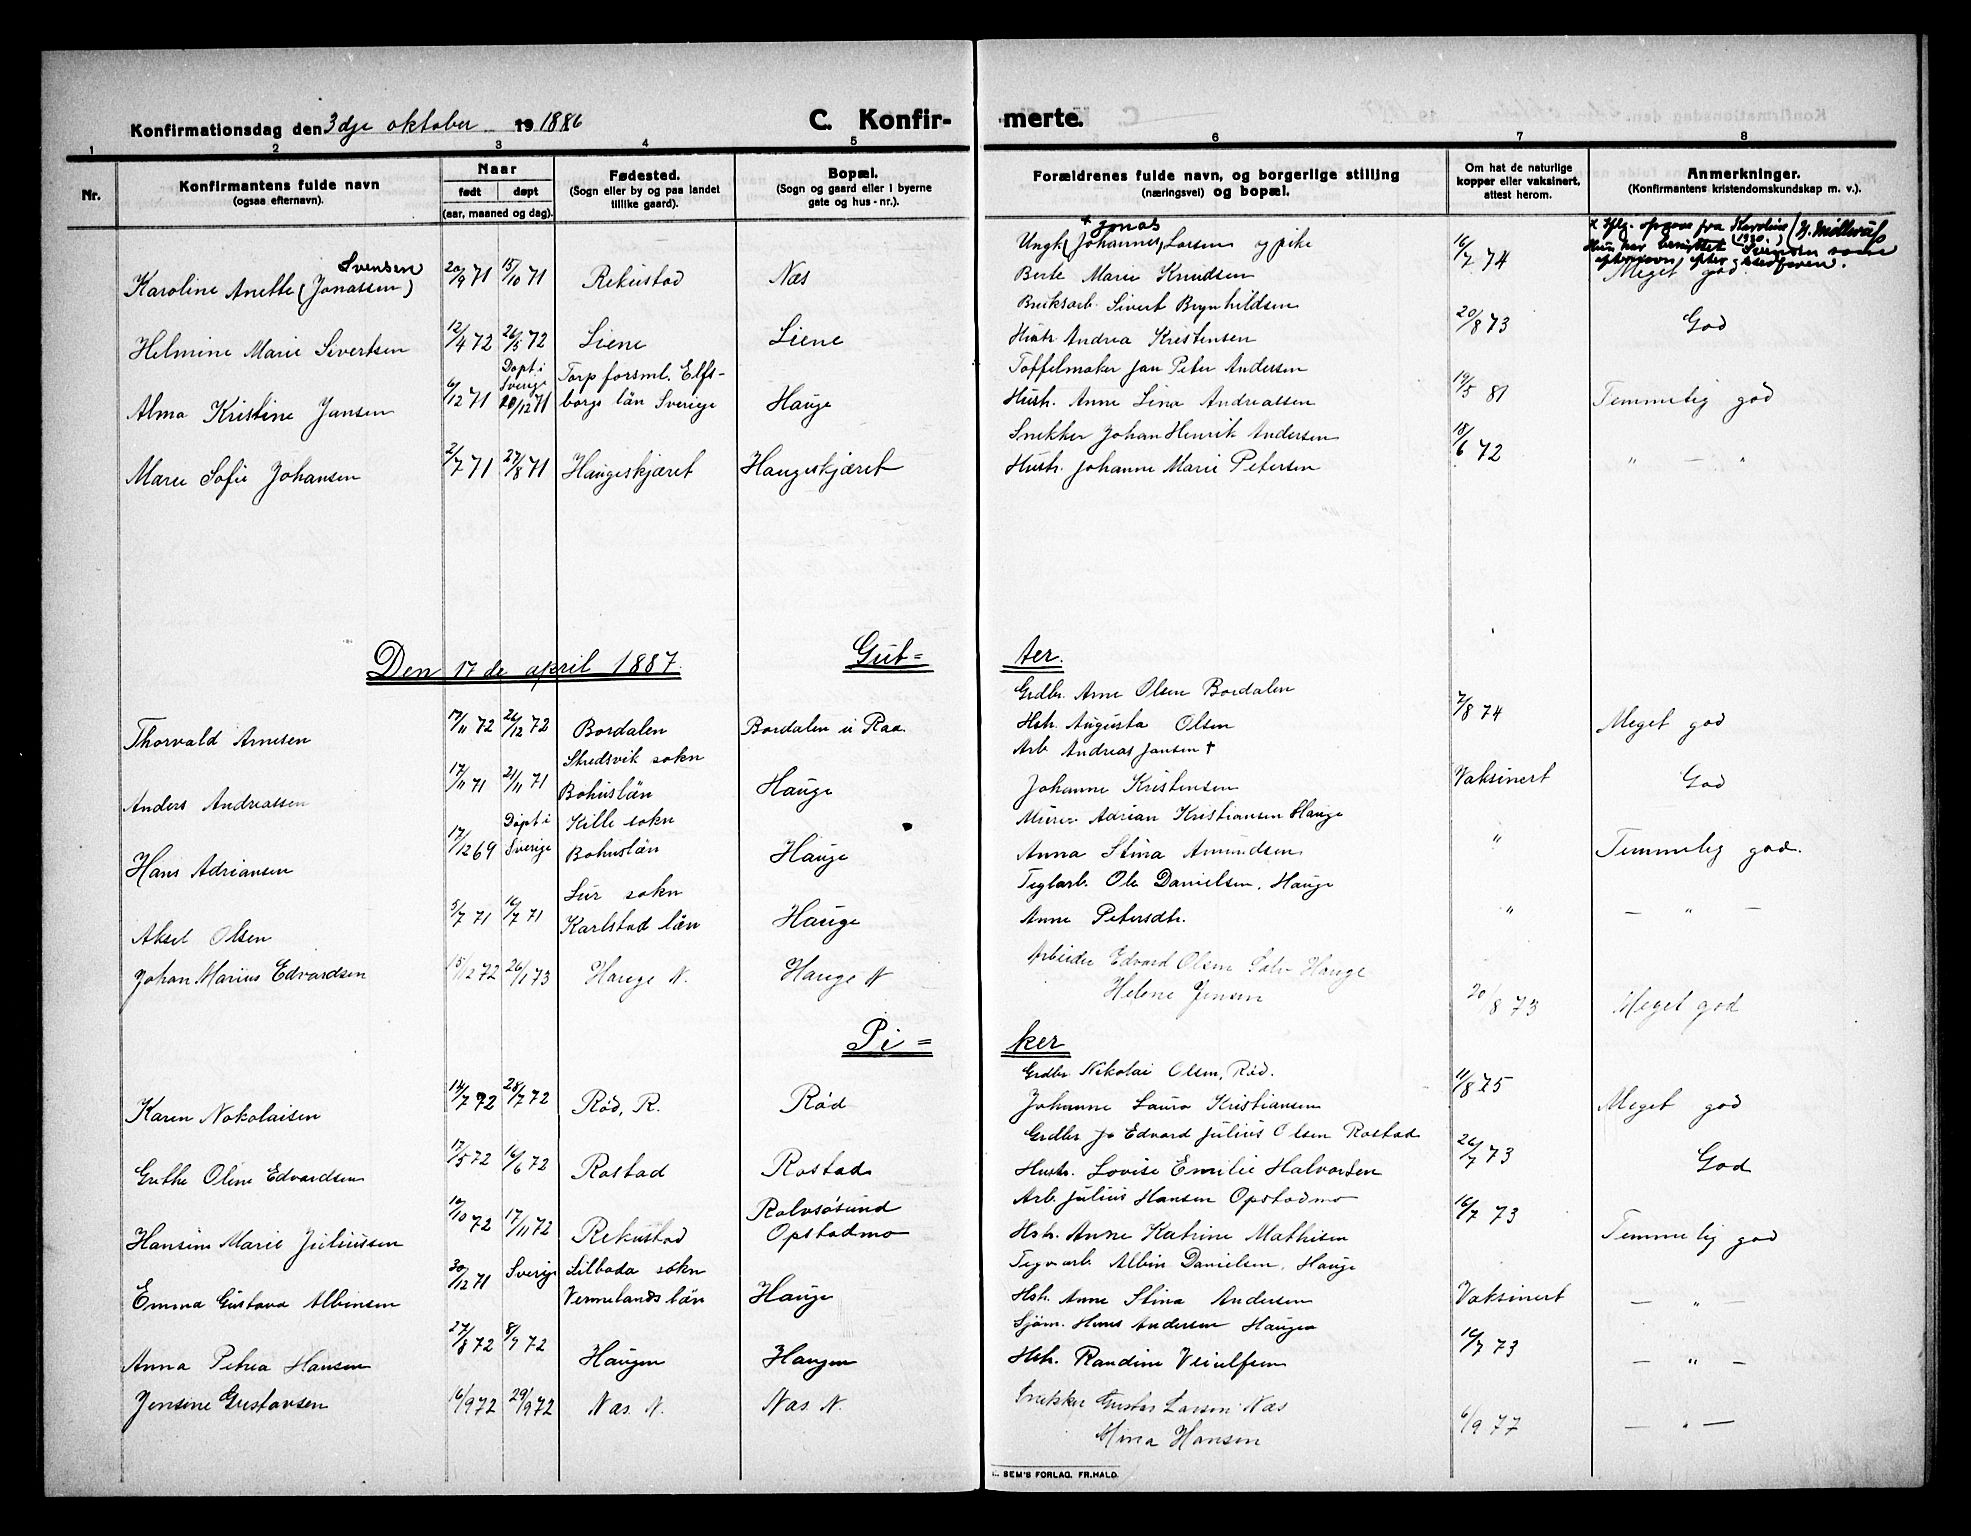 Konfirmationsdag den 3dje oktober 19 1886
C. Konfir-
merte.
1 2 3 4 5 6 7 8
Nr.
Konfirmantens fulde navn
(ogsaa efternavn).
Naar
født døpt
(aar, maaned og dag).
Fødested.
(Sogn eller by og paa landet
tillike gaard).
Bopæl.
(Sogn og gaard eller i byerne
gate og hus-nr.).
Forældrenes fulde navn, og borgerlige stilling
(næringsvei) og bopæl.
Om hat de naturlige
kopper eller vaksinert,
attest herom.
Anmerkninger.
(Konfirmantens kristendomskundskap m. v.).
Svensen
Karoline Anette (Jonassen) 20/9 71 15/10 71 Rekustad Næs
+ Jonas
Ungk. (Johannes) Larsen og pike
Berte Marie Knudsen
16/7 74
Meget god
Helmine Marie Sivertsen 12/4 72 26/5 72 Liene Liene
Bruksarb. Sivert Brynhildsen
Hustr. Andrea Kristensen
20/8 73 God
Alma Kristine Jansen 6/12 71
Døpt i
Sverige
20/12 71
Torp forsml. Elfs-
borgs län Sverige
Hauge
Toffelmaker Jan Peter Andersen
Hustr. Anne Lina Andreassen
19/5 81 Temmelig god
Marie Sofie Johansen 2/7 71 27/8 71 Haugeskjæret Haugeskjæret
Snekker Johan Henrik Andersen
Hustr. Johanne Marie Petersen
18/6 72 " — "
Den 17de april 1887.
Gut=
ter.
Thorvald Arnesen 17/11 72 26/12 72 Bordalen Bordalen i Raa.
Grdbr. Arne Olsen Bordalen
Hstr. Augusta Olsen
7/8 74 Meget god
Anders Andreassen 17/11 71 21/11 71
Stredsvik sokn
Bohuslän
Hauge
Arb. Andreas Jansen †
Johanne Kristensen
Vaksinert God
Hans Adriansen 17/12 69
Døpt i
Sverige
Kille sokn
Bohuslän
Hauge
Murer Adrian Kristiansen Hauge
Anna Stina Amundsen
" Temmelig god.
Aksel Olsen 5/7 71 16/7 71
Sur sokn
Karlstad län
Hauge
Teglarb. Ole Danielsen, Hauge
Anne Petersdtr.
" — " —
Johan Marius Edvardsen 15/12 72 26/1 73 Hauge N. Hauge N
Arbeider Edvard Olsen Hauge
Helene Jensen
20/8 73 Meget god
Pi=
ker
Karen Nokolaisen 14/7 72 28/7 72 Rød, R. Rød
Grdbr Nikolai Olsen, Rød.
Johanne Laura Kristiansen
11/8 75 Meget god
Grethe Oline Edvardsen 17/5 72 16/6 72 Rostad Rostad
Grdbr Jo Edvard Julius Olsen Rostad
Hustr. Lovise Emilie Halvorsen
26/7 73 God
Hansine Marie Juliussen 10/10 72 17/11 72 Rekustad
Rolvsøsund
Opstadmo
Arb. Julius Hansen Opstadmo
Hstr. Anne Katrine Mathisen
16/7 73 Temmelig god
Emma Gustava Albinsen 30/12 71 Sverige
Silbada sokn
Vermelands län
Hauge
Teglarb. Albin Danielsen, Hauge
Hstr. Anne Stina Andersen
Vaksinert — " —
Anna Petrea Hansen 27/8 72 8/9 72 Haugen Haugen
Sjøm. Hans Andersen Haugen
Hstr. Randine
16/7 73 — " —
Jensine Gustavsen 16/9 72 29/9 72 Næs N. Næs N.
Snekker Gustav Larsen Næs
Mina Hansen
6/9 77 — " —
SEM'S FORLAG. FR.HALD.